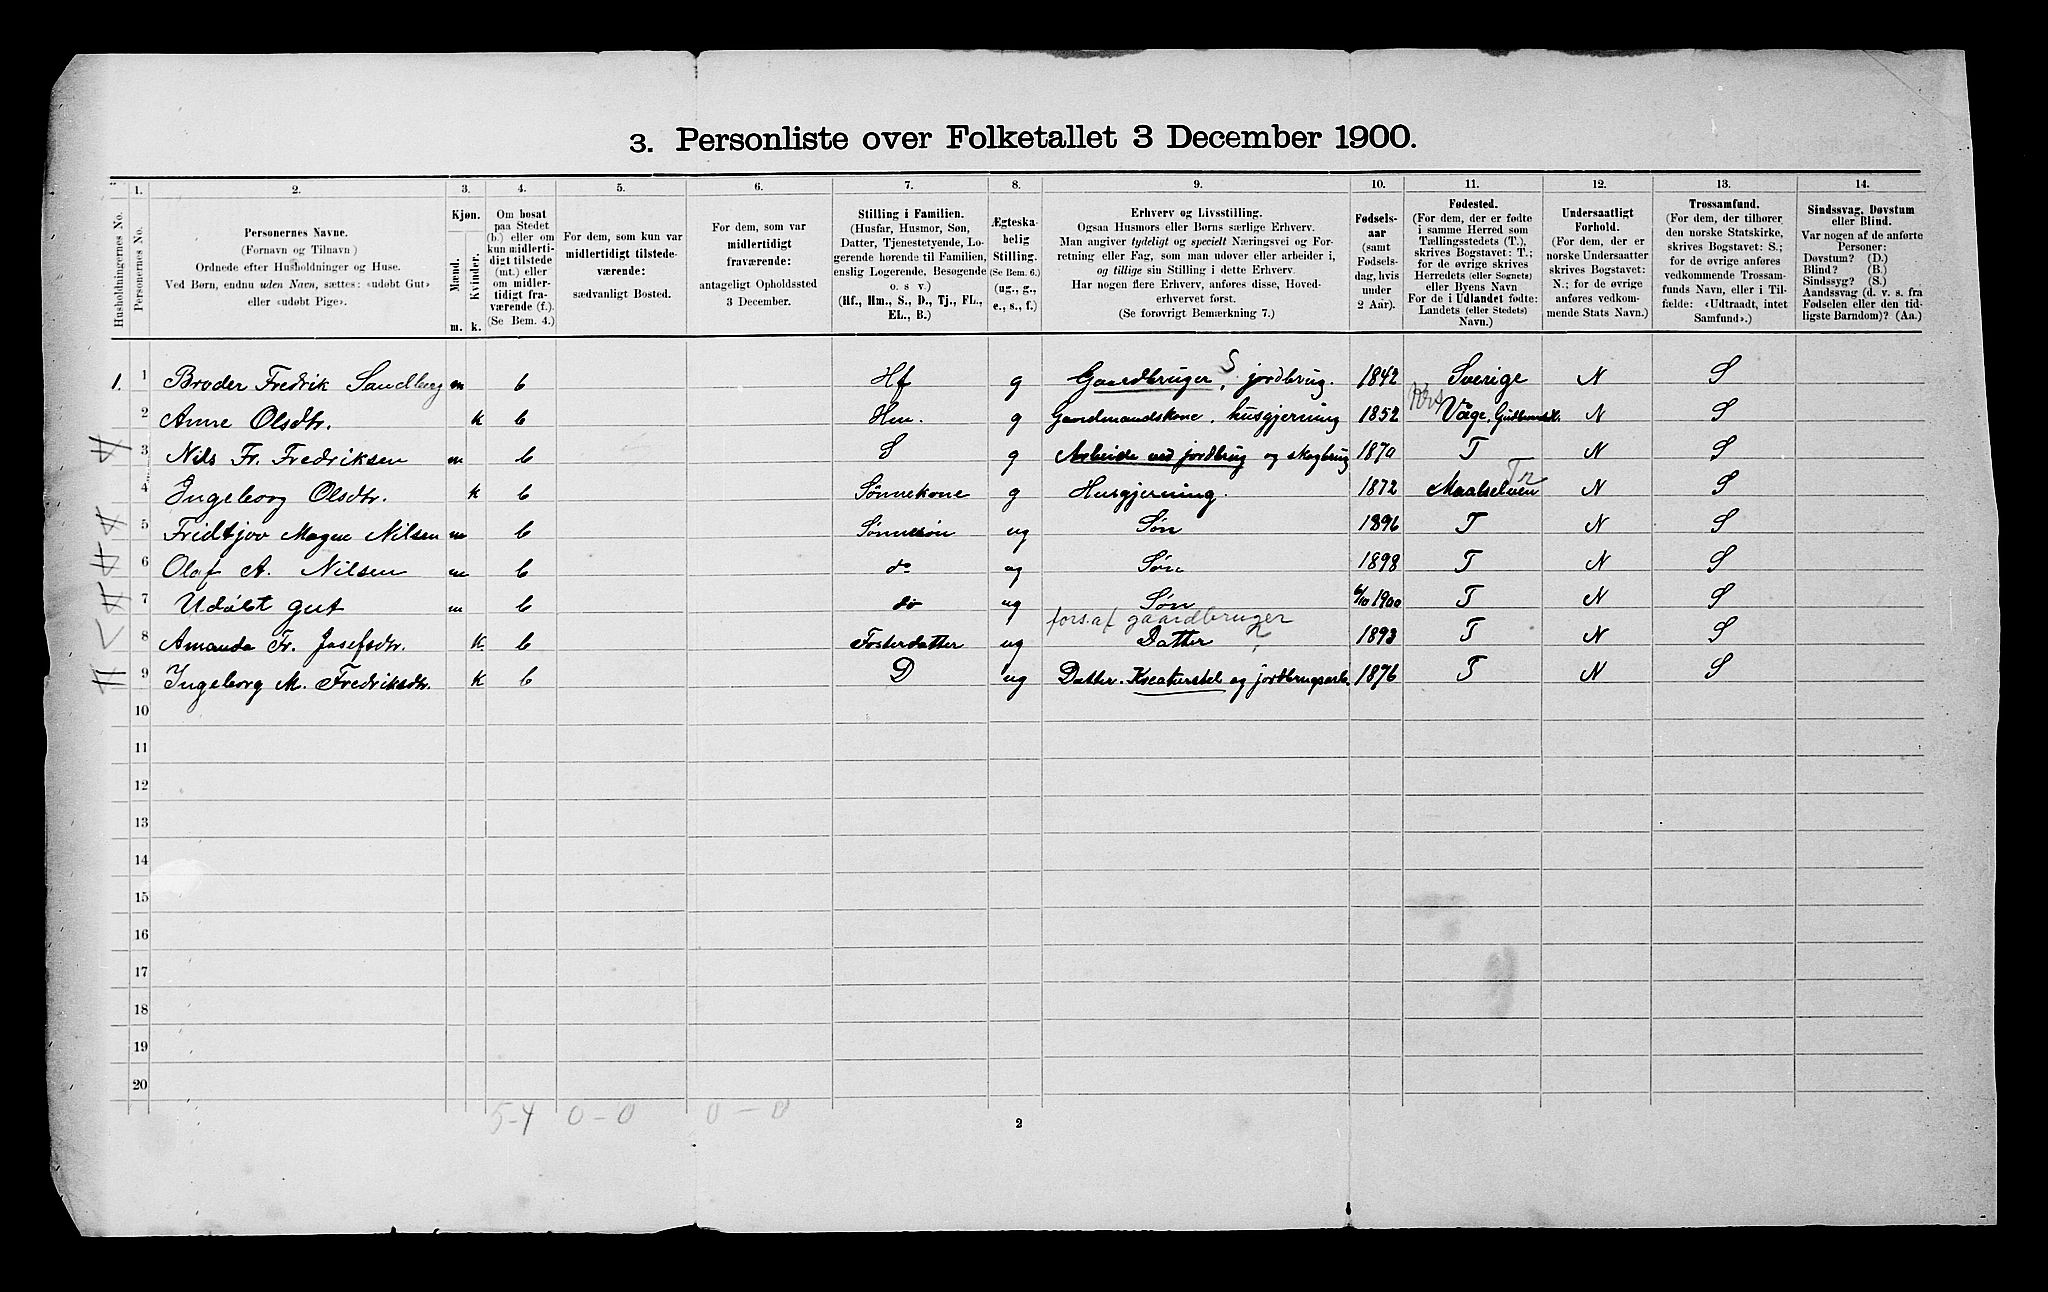 3. Personliste over Folketallet 3 December 1900.
1. 2. 3. 4. 5. 6. 7. 8. 9. 10. 11. 12. 13. 14.
Husholdningernes No.
Personernes No.
Personernes Navne.
(Fornavn og Tilnavn)
Ordnede efter Husholdninger og Huse.
Ved Børn, endnu uden Navn, sættes: «udøbt Gut»
eller «udøbt Pige».
Kjøn.
Mænd. Kvinder.
m. k.
Om bosat
paa Stedet
(b.) eller om
kun midlerti-
digt tilstede
(mt.) eller
om midler-
tidigt fra-
værende (f.).
(Se Bem. 4.)
For dem, som kun var
midlertidigt tilstede-
værende:
sædvanligt Bosted.
For dem, som var
midlertidigt
fraværende:
antageligt Opholdssted
3 December.
Stilling i Familien.
(Husfar, Husmor, Søn,
Datter, Tjenestetyende, Lo-
gerende hørende til Familien,
enslig Logerende, Besøgende
o. s. v.)
(Hf., Hm., S., D., Tj., FL.,
EL., B.)
Ægteska-
belig
Stilling.
(Se Bem. 6.)
(ug., g.,
e., s., f.)
Erhverv og Livsstilling.
Ogsaa Husmors eller Børns særlige Erhverv.
Man angiver tydeligt og specielt Næringsvei og For-
retning eller Fag, som man udover eller arbeider i,
og tillige sin Stilling i dette Erhverv.
Har nogen flere Erhverv, anføres disse, Hoved-
erhvervet først.
(Se forøvrigt Bemærkning 7.)
Fødsels-
aar
(samt
Fødsels-
dag, hvis
under
2 Aar).
Fødested.
(For dem, der er fødte
i samme Herred som
Tællingsstedets (T.),
skrives Bogstavet: T.;
for de øvrige skrives
Herredets (eller Sognets)
eller Byens Navn
For de i Udlandet fødte:
Landets (eller Stedets)
Navn.)
Undersaatligt
Forhold.
(For dem, der er
norske Undersaatter
skrives Bogstavet:
N.; for de øvrige
anføres vedkom-
mende Stats Navn.)
Trossamfund.
(For dem, der tilhører
den norske Statskirke,
skrives Bogstavet: S.;
for de øvrige anføres
vedkommende Trossam-
funds Navn, eller i Til-
fælde: «Udtraadt, intet
Samfund».)
Sindssvag, Døvstum
eller Blind.
Var nogen af de anførte
Personer:
Døvstum? (D.)
Blind? (B.)
Sindssyg? (S.)
Aandssvag (d. v. s. fra
Fødselen eller den tid-
ligste Barndom)? (Aa.)
1. 1 Broder Fredrik Sandberg m b Hf g Gaardbruger S, jordbrug. 1842 Sverige N S
2 Anne Olsdtr. k b Hm. g Gaardmandskone. husgjerning 1852 Våge, N S
3 Nils Fr. Fredriksen m b S g Arbeide ved jordbrug og skogbrug 1870 T N S
4 Ingeborg Olsdtr. k b Sønnekone g Husgjerning. 1872 Maalselven Tr N S
5 Fridtjov Magne Nilsen m b Sønnesøn ug Søn 1896 T N S
6 Olaf A. Nilsen m b do ug Søn 1898 T N S
7 Udøbt gut m b do ug Søn 6/10 1900 T N S
fors. af gaardbruger
8 Amanda Fr. Josefsdtr. k b Fosterdatter ug Datter 1893 T N S
9 Ingeborg M. Fredriksdtr. k b D ug Datter. Kreaturstel og jordbrugsarb. 1876 T N S
10
11
12
13
14
15
16
17
18
19
20
5-4 0-0 0-0
2